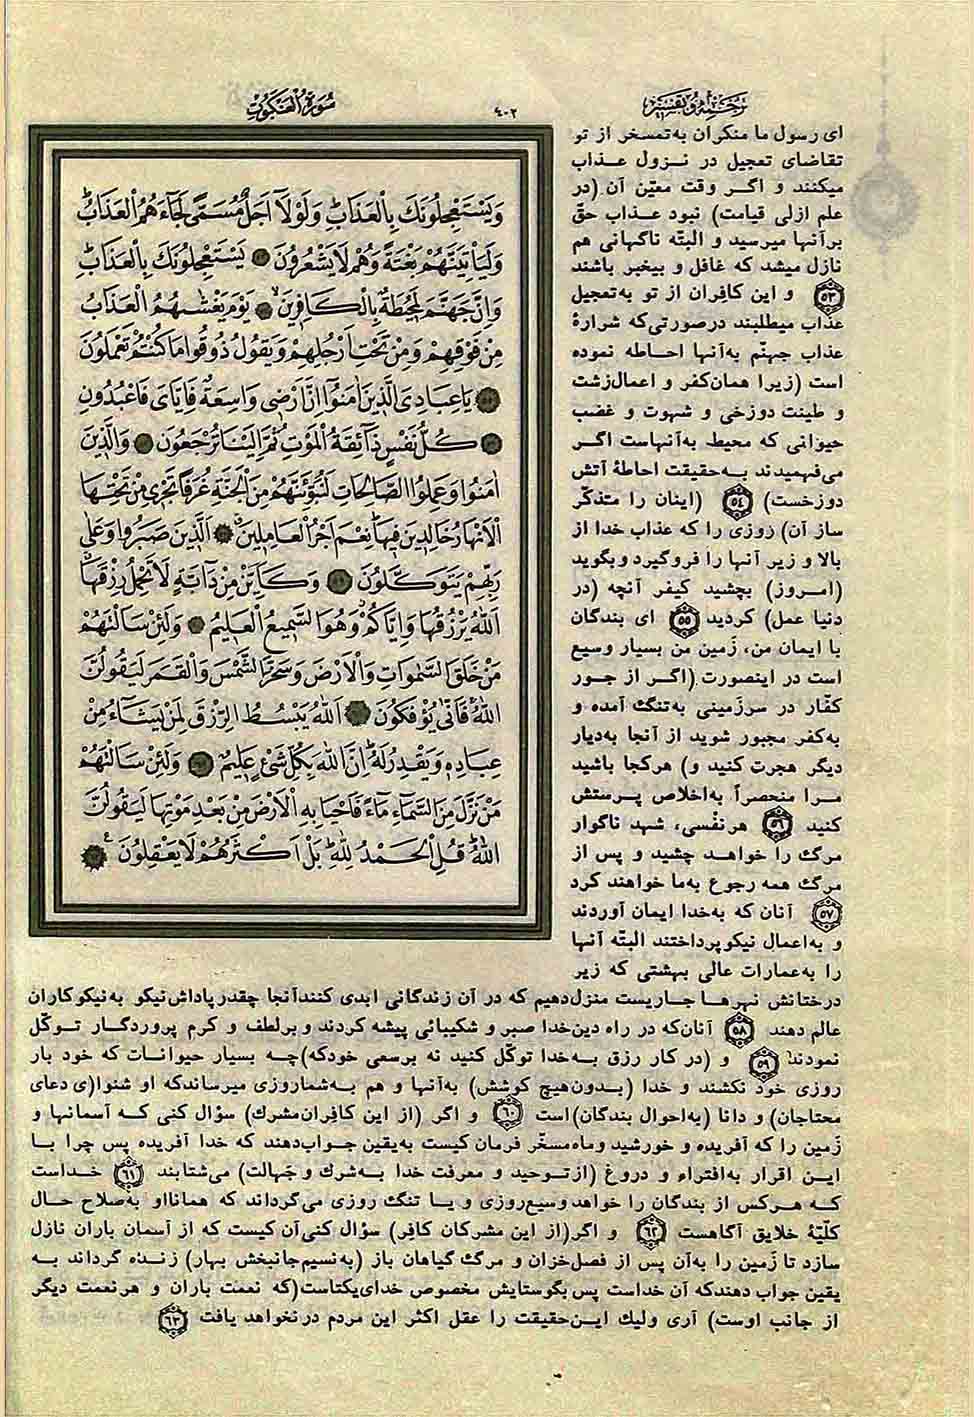 ترجمه و تفسیر
٤٠٢
سورة العنکبوت
ای رسول ما منکران به‌تمسخر از تو
تقاضای تعجیل در نـزول عـذاب
میکنند و اگـر وقت معیّن آن (در
علم ازلی قیامت) نبود عـذاب حقّ
برآنها میرسید و البتّه ناگهانی هم
نازل میشد که غافل و بیخبر باشند
٥٣ و این کافران از تو به‌تعجیل
عذاب میطلبند درصورتی‌که شرارهٔ
عذاب جهنّم به‌آنها احـاطه نموده
است (زیرا همان‌کفر و اعمال‌زشت
و طینت دوزخی و شهوت و غضب
حیوانی که محیط به‌آنهاست اگـر
می‌فهمیدند بـه‌حقیقت احاطهٔ آتش
دوزخست) ٥٤ (اینان را متذکّر
ساز آن) روزی را که عذاب خدا از
بالا و زیر آنها را فروگیرد وبگوید
(امـروز) بچشید کیفر آنچه (در
دنیا عمل) کردید ٥٥ ای بندگان
با ایمان من، زمین من بسیار وسیع
است در اینصورت (اگـر از جـور
کفّار در سرزمینی به‌تنگ آمده و
به‌کفر مجبور شوید از آنجا به‌دیار
دیگر هجرت کنید و) هرکجا باشید
مـرا منحصراً به‌اخلاص پـرستش
کنید ٥٦ هرنفْسی، شهد ناگوار
مرگ را خواهـد چشید و پس از
مرگ همه رجوع به‌ما خواهند کرد
٥٧ آنان که به‌خدا ایمان آوردند
و به‌اعمال نیکوپرداختند البتّه آنها
را به‌عمارات عالی بهشتی که زیر
وَيَسْتَعْجِلُونَكَ بِالْعَذَابِ وَلَوْلَا أَجَلٌ مُسَمًّى لَجَاءَهُمُ الْعَذَابُ
وَلَيَأْتِيَنَّهُمْ بَغْتَةً وَهُمْ لَا يَشْعُرُونَ يَسْتَعْجِلُونَكَ بِالْعَذَابِ
وَإِنَّ جَهَنَّمَ لَمُحِيطَةٌ بِالْكَافِرِينَ يَوْمَ يَغْشٰيهُمُ الْعَذَابُ
مِنْ فَوْقِهِمْ وَمِنْ تَحْتِ أَرْجُلِهِمْ وَيَقُولُ ذُوقُوا مَا كُنْتُمْ تَعْمَلُونَ
يَا عِبَادِيَ الَّذِينَ آمَنُوا إِنَّ أَرْضِي وَاسِعَةٌ فَإِيَّايَ فَاعْبُدُونِ
كُلُّ نَفْسٍ ذَائِقَةُ الْمَوْتِ ثُمَّ إِلَيْنَا تُرْجَعُونَ وَالَّذِينَ
آمَنُوا وَعَمِلُوا الصَّالِحَاتِ لَنُبَوِّئَنَّهُمْ مِنَ الْجَنَّةِ غُرَفًا تَجْرِي مِنْ تَحْتِهَا
الْأَنْهَارُ خَالِدِينَ فِيهَا نِعْمَ أَجْرُ الْعَامِلِينَ الَّذِينَ صَبَرُوا وَعَلَى
رَبِّهِمْ يَتَوَكَّلُونَ وَكَأَيِّنْ مِنْ دَابَّةٍ لَا تَحْمِلُ رِزْقَهَا
اللَّهُ يَرْزُقُهَا وَإِيَّاكُمْ وَهُوَ السَّمِيعُ الْعَلِيمُ وَلَئِنْ سَأَلْتَهُمْ
مَنْ خَلَقَ السَّمٰوَاتِ وَالْأَرْضَ وَسَخَّرَ الشَّمْسَ وَالْقَمَرَ لَيَقُولُنَّ
اللَّهُ فَأَنّٰى يُؤْفَكُونَ اللَّهُ يَبْسُطُ الرِّزْقَ لِمَنْ يَشَاءُ مِنْ
عِبَادِهِ وَيَقْدِرُ لَهُ إِنَّ اللَّهَ بِكُلِّ شَيْءٍ عَلِيمٌ وَلَئِنْ سَأَلْتَهُمْ
مَنْ نَزَّلَ مِنَ السَّمَاءِ مَاءً فَأَحْيَا بِهِ الْأَرْضَ مِنْ بَعْدِ مَوْتِهَا لَيَقُولُنَّ
اللَّهُ قُلِ الْحَمْدُ لِلَّهِ بَلْ أَكْثَرُهُمْ لَا يَعْقِلُونَ ع
درختانش نهرهـا جـاریست منزل‌دهیم که در آن زندگانی ابدی کنندآنجا چقدرپاداش‌نیکو به‌نیکوکاران
عالم دهند ٥٨ آنان‌که در راه دین‌خدا صبر و شکیبائی پیشه کردند وبرلطف و کرم پروردگار تـوکّل
نمودند ٥٩ و (در کار رزق بـه‌خدا توکّل کنید نه برسعی خودکه)چـه بسیار حیوانـات که خود بار
روزی خود نکشند و خدا (بـدون‌هیچ کوشش) به‌آنها و هم به‌شماروزی میرساندکه او شنوا(ی دعای
محتاجان) و دانا (به‌احوال بندگان)است ٦٠ و اگر (از این کافران‌مشرك) سؤال کنی کـه آسمانهـا و
زمین را که آفریده و خورشید وماه‌مسخّر فرمان کیست به‌یقین جـواب‌دهند که خدا آفریده پس چرا بـا
ایـن اقرار به‌افتراء و دروغ (ازتـوحید و معرفت خدا بـه‌شرك وجهالت) می‌شتابند ٦١ خـداست
کـه هرکس از بندگان را خواهد وسیع‌روزی و یـا تنگ روزی می‌گرداند که همانااو به‌صلاح حـال
کلیّهٔ خلایق آگاهست ٦٢ و اگر(از این مشرکان کافر) سؤال کنی‌آن کیست که از آسمان باران نازل
سازد تا زمین را به‌آن پس از فصل‌خزان و مرگ گیاهان باز (به‌نسیم‌جانبخش بهار) زنده گرداند بـه
یقین جواب دهندکه آن خداست پس بگوستایش مخصوص خدای‌یکتاست(که نعمت باران و هرنعمت دیگر
از جانب اوست) آری ولیك ایـن‌حقیقت را عقل اکثر این مردم درنخواهد یافت ٦٣